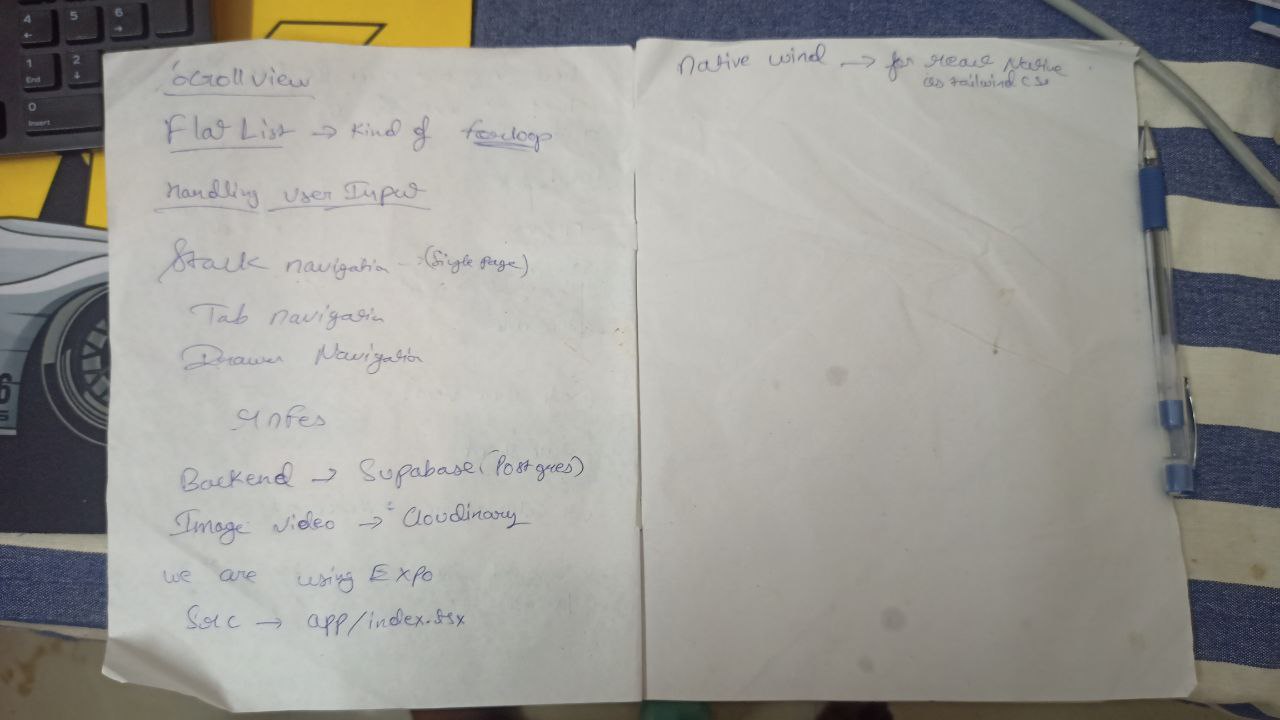 4 5 6
1 End 2
0 Insert
ScrollView
Flat List → Kind of forloop
Handling user Input
Stack navigation → (Single page)
Tab navigation
Drawer Navigation
Notes
Backend → Supabase (Postgres)
Image video → Cloudinary
we are using Expo
Src → app/index.tsx
Native wind → for React Native
as tailwind css